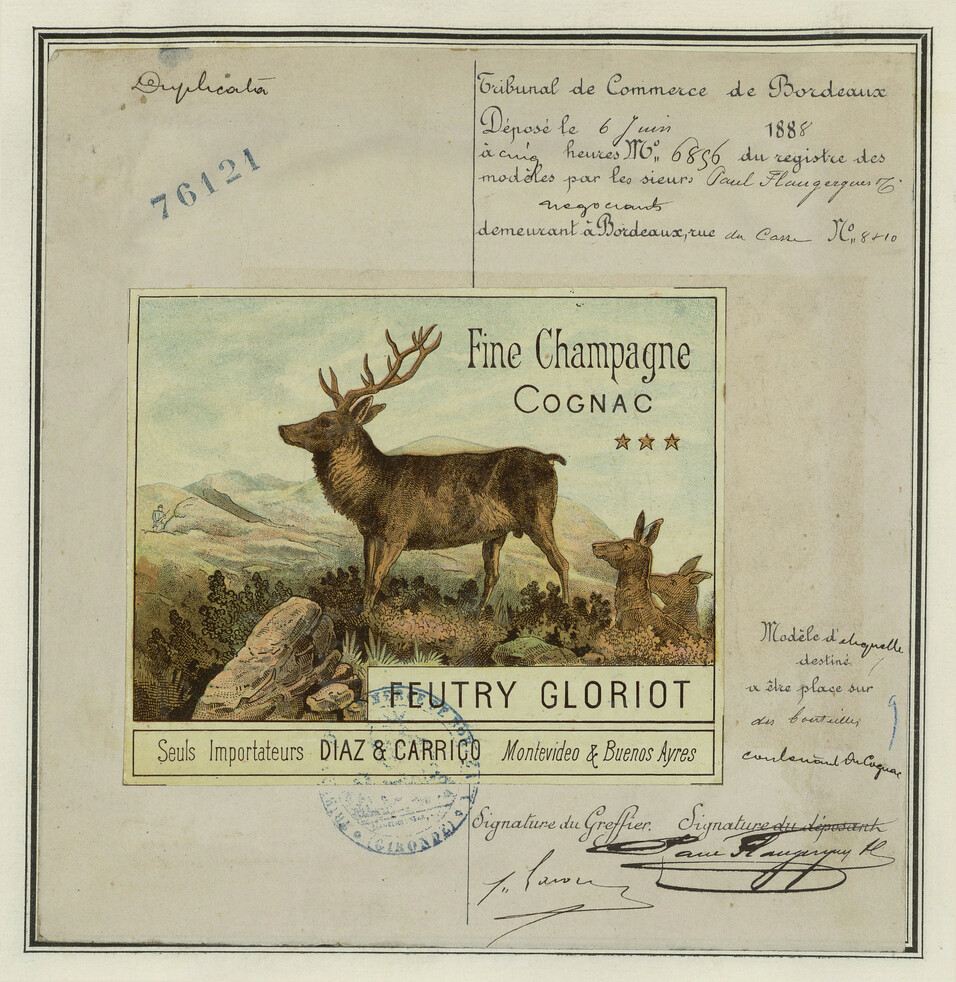 Duplicata
76121
Tribunal de Commerce de Bordeaux
Déposé le 6 Juin 1888
à cinq heures No 6896 du registre des
modèles par les sieurs Paul Flaugergues
negociants
demeurant à Bordeaux, rue du Casse No 8 & 10
Fine Champagne
COGNAC
FEUTRY GLORIOT
Seuls Importateurs DIAZ & CARRIÇO Montevideo & Buenos Ayres
Modèle d'etiquette
destiné
a être placé sur
des bouteilles
contenant du Cognac
(GIRONDE)
Signature du Greffier. Signature du déposant
Paul Flaugergues